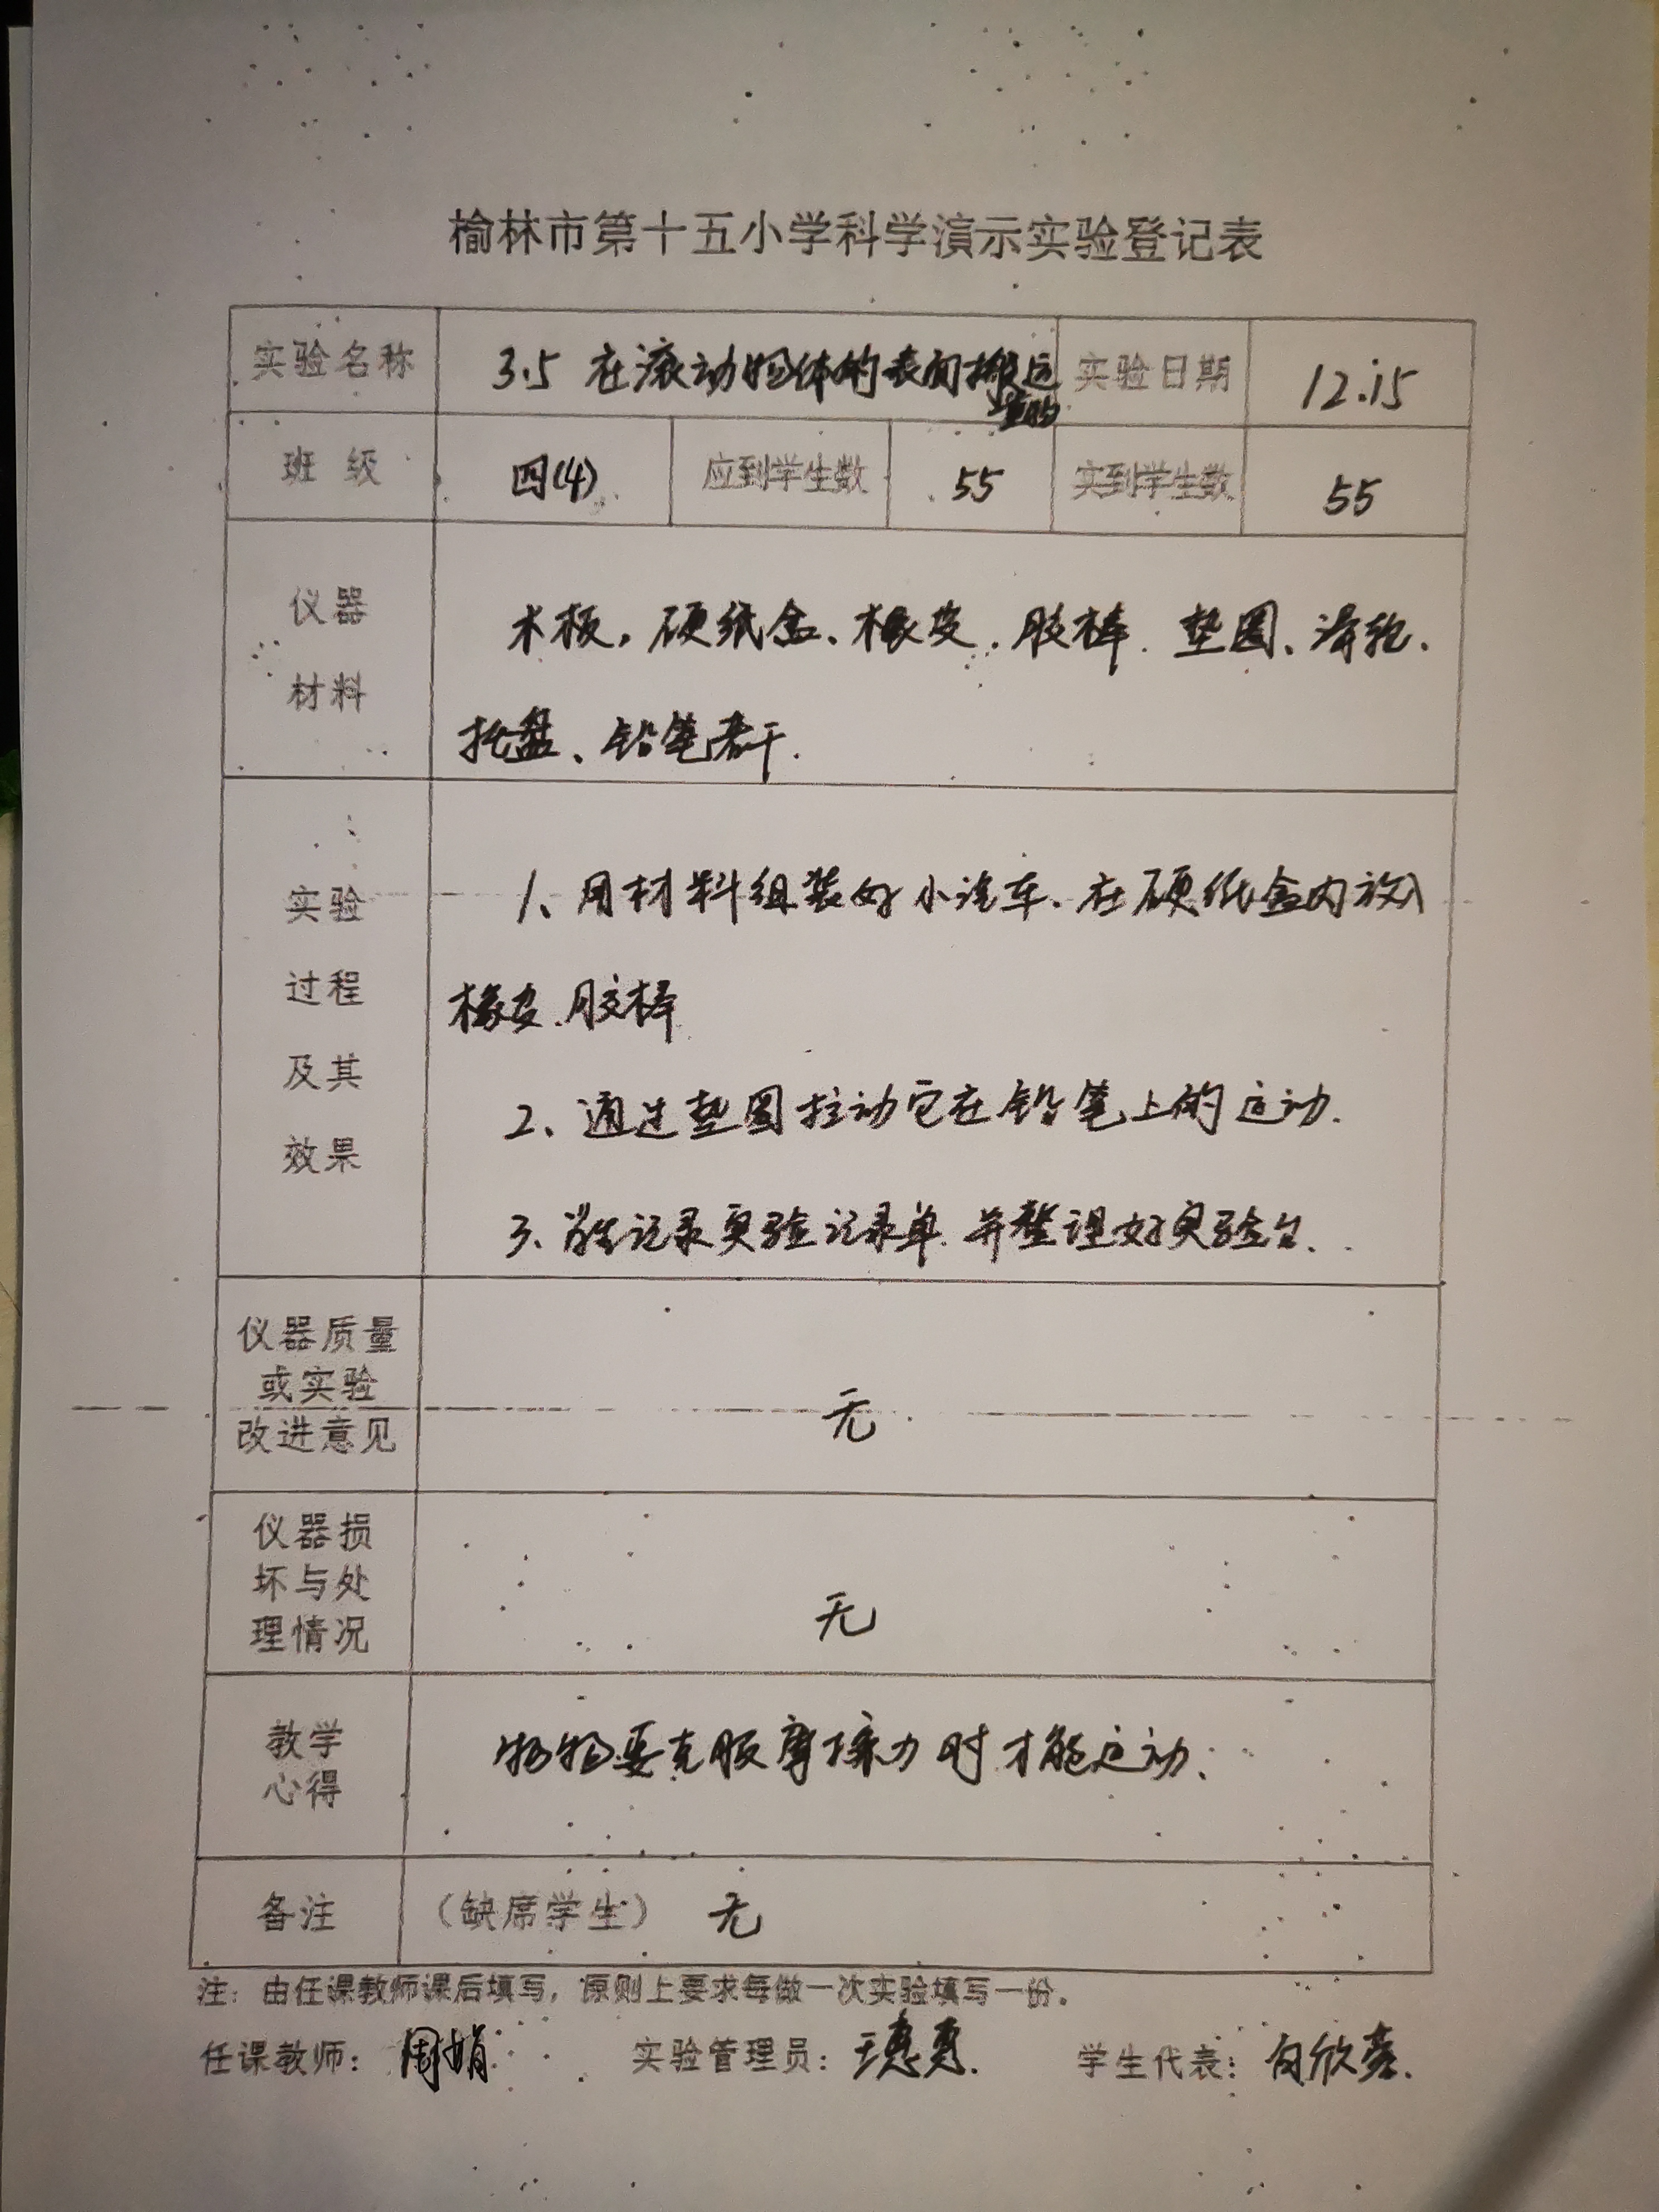 榆林市第十五小学科学演示实验登记表
实验名称 3.5 在滚动物体的表面搬运 实验日期 12.15
重物
班 级 四(4) 应到学生数 55 实到学生数 55
仪器
材料
木板、硬纸盒、橡皮、胶棒、垫圈、滑轮、
托盘、铅笔若干.
实验
过程
及其
效果
1、用材料组装好小汽车.在硬纸盒内放入
橡皮、胶棒
2、通过垫圈拉动它在铅笔上的运动.
3、学生记录实验记录单.并整理好实验台.
仪器质量
或实验
改进意见
无
仪器损
坏与处
理情况
无
教学
心得
物物要克服摩擦力时才能运动.
备注 （缺席学生） 无
注：由任课教师课后填写，原则上要求每做一次实验填写一份。
任课教师： 周娟 实验管理员： 学生代表：